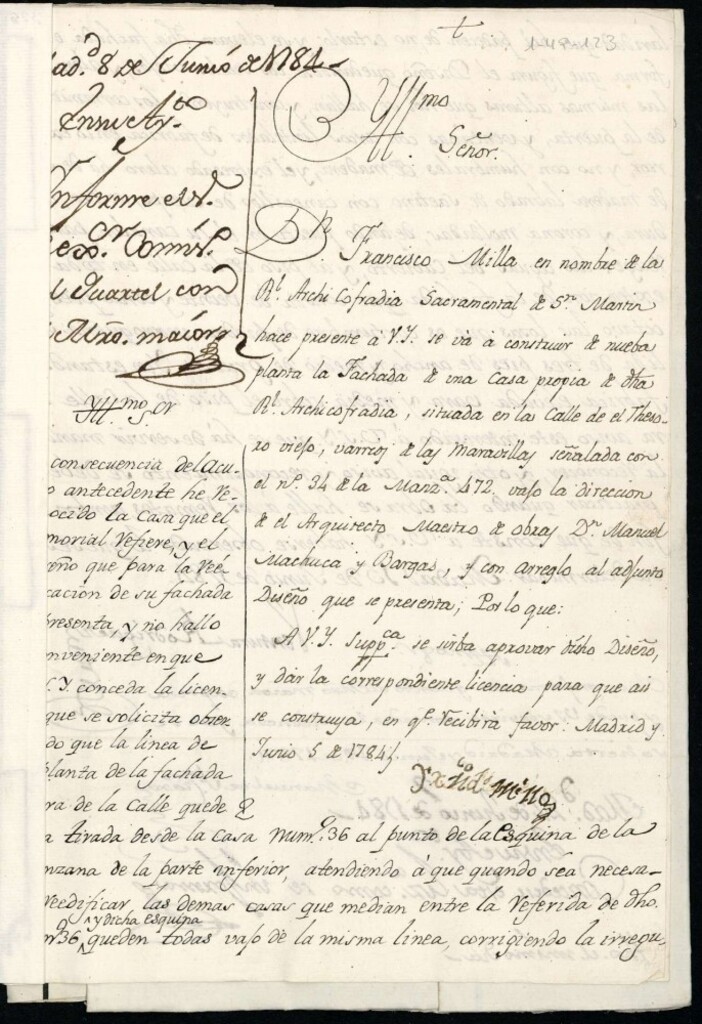 1-48-123
Yllmo
Señor.
Dn Francisco Milla en nombre de la
Rl. Archi Cofradia Sacramental de Sn. Martin
hace presente á V.Y. se vá á construir de nueba
planta la Fachada de una Casa propia de dha
Rl. Archicofradia, situada en la Calle de el Theso-
ro viejo, varrios de las Maravillas señalada con
el no. 34 de la Manza. 472 vajo la direccion
de el Arquitecto Maestro de obras Dn. Manuel
Machuca y Bargas, y con arreglo al adjunto
Diseño que se presenta; Por lo que:
A V.Y. Suppca. se sirba aprovar dicho Diseño,
y dar la correspondiente licencia para que asi
se construya, en qe. recibirá favor: Madrid y
Junio 5 de 1784
Milla
ad.d 8 de Junio de 1784
En su Ayto.
nforme el Sr.
Cavo. Comiso.
l Quartel con
Mro. maior
Yllmo Sor
consecuencia del acu-
o antecedente he re-
ocido la Casa que el
morial refiere, y el
eño que para la reé-
cacion de su fachada
presenta, y no hallo
nveniente en que
V.Y. conceda la licen-
que se solicita obser-
do que la linea de
planta de la fachada
ra de la Calle quede
a tirada desde la casa numo. 36 al punto de la esquina de la
nzana de la parte inferior, atendiendo á que quando sea necesa-
reedificar, las demas casas que median entre la referida de dho.
no 36 y dicha esquina queden todas vajo de la misma linea, corrigiendo la irregu-